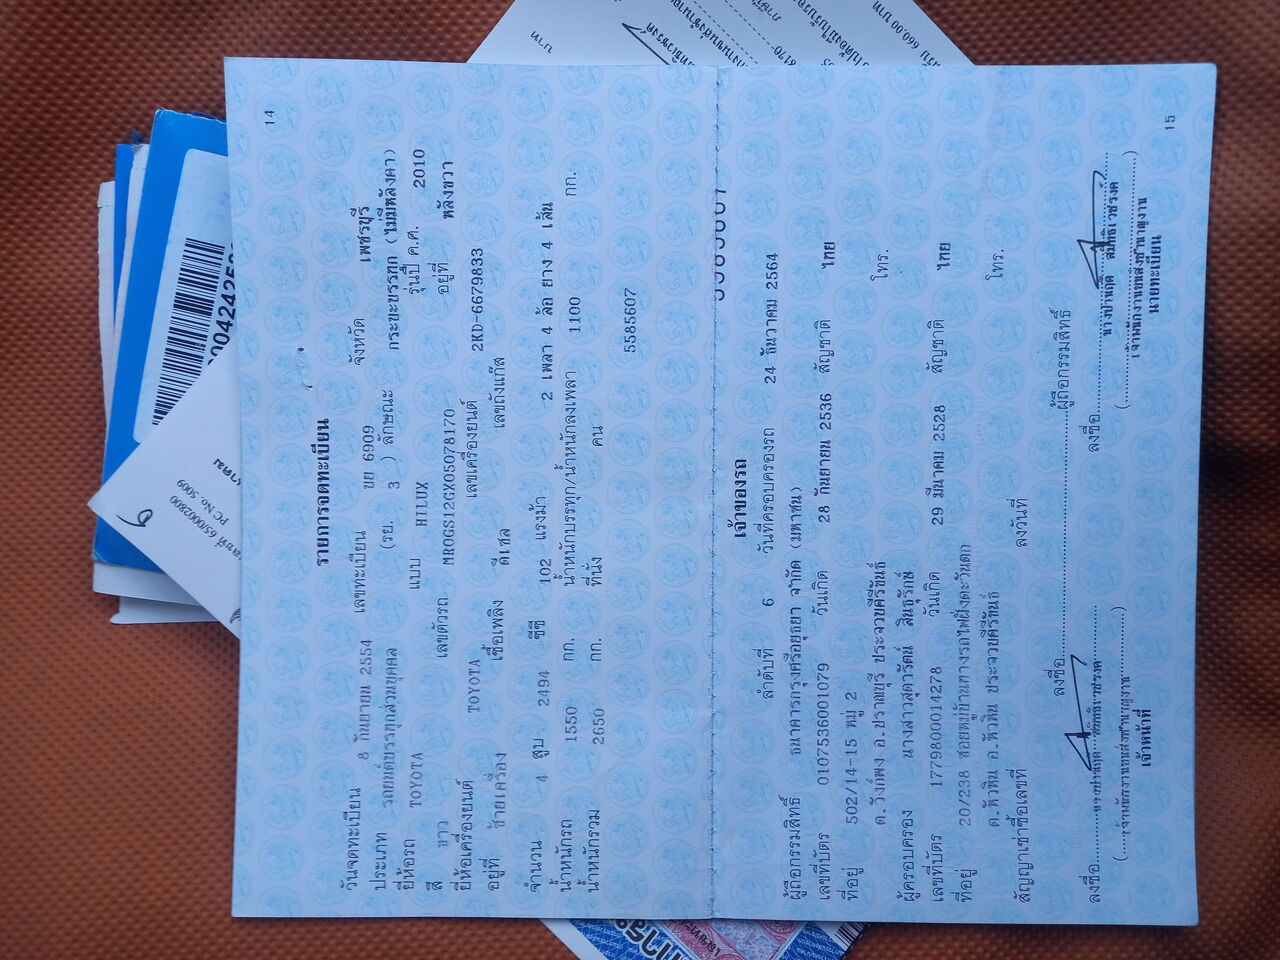 14
รายการจดทะเบียน
วันจดทะเบียน 8 กันยายน 2554 เลขทะเบียน บย 6909 จังหวัด เพชรบุรี
ประเภท รถยนต์บรรทุกส่วนบุคคล (รย. 3 ) ลักษณะ กระบะบรรทุก (ไม่มีหลังคา)
ยี่ห้อรถ TOYOTA แบบ HILUX รุ่นปี ค.ศ. 2010
สี ขาว เลขตัวรถ MROGS12GX05078170 อยู่ที่ หลังขวา
ยี่ห้อเครื่องยนต์ TOYOTA เลขเครื่องยนต์ 2KD-6679833
อยู่ที่ ซ้ายเครื่อง เชื้อเพลิง ดีเซล เลขถังแก๊ส
จำนวน 4 สูบ 2494 ซีซี 102 แรงม้า 2 เพลา 4 ล้อ ยาง 4 เส้น
น้ำหนักรถ 1550 กก. น้ำหนักบรรทุก/น้ำหนักลงเพลา 1100 กก.
น้ำหนักรวม 2650 กก. ที่นั่ง คน
5585607
เจ้าของรถ
ลำดับที่ 6 วันที่ครอบครองรถ 24 ธันวาคม 2564
ผู้ถือกรรมสิทธิ์ ธนาคารกรุงศรีอยุธยา จำกัด (มหาชน)
เลขที่บัตร 0107536001079 วันเกิด 28 กันยายน 2536 สัญชาติ ไทย
ที่อยู่ 502/14-15 หมู่ 2
ต.วังก์พง อ.ปราณบุรี ประจวบคีรีขันธ์ โทร.
ผู้ครอบครอง นางสาวสุดารัตน์ สินธุรักษ์
เลขที่บัตร 1779800014278 วันเกิด 29 มีนาคม 2528 สัญชาติ ไทย
ที่อยู่ 20/238 ซอยหมู่บ้านทางรถไฟฝั่งตะวันตก
ต.หัวหิน อ.หัวหิน ประจวบคีรีขันธ์ โทร.
สัญญาเช่าซื้อเลขที่ ลงวันที่
ลงชื่อ ผู้ถือกรรมสิทธิ์
ลงชื่อ ลงชื่อ
(เจ้าพนักงานขนส่งชำนาญงาน) (เจ้าพนักงานขนส่งชำนาญงาน)
เจ้าหน้าที่ นายทะเบียน
15
เลขที่ 65/0002800
PC No. 5009
660.00 บาท
บาท